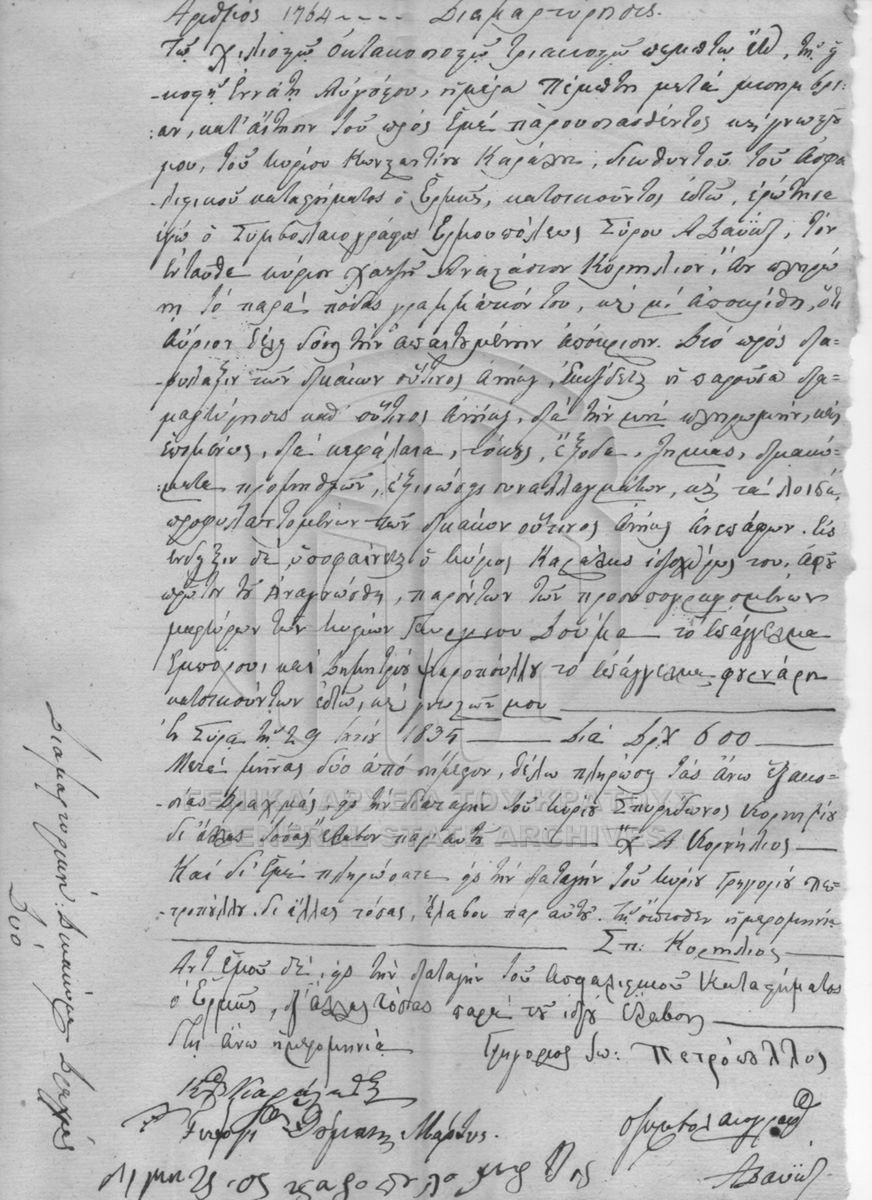 Αριθμός 1764 ---- Διαμαρτύρησις.
Τῷ χιλιοστῷ ὀκτακοσιοστῷ τριακοστῷ πέμπτῳ ἔτει, τῇ εἰ-
-κοστῇ ἐννάτῃ Αὐγούστου, ἡμέρᾳ Πέμπτῃ μετὰ μεσημβρί-
:αν, κατ' αἴτησιν τοῦ πρὸς ἐμὲ παρουσιασθέντος καὶ γνωστοῦ
μου, τοῦ κυρίου Κωνσταντίνου Καράλη, διευθυντοῦ τοῦ Ἀσφα-
λιστικοῦ καταστήματος ὁ Ἑρμῆς, κατοικοῦντος ἐδῶ, ἐρώτησα
ἐγὼ ὁ Συμβολαιογράφος Ἑρμουπόλεως Σύρου, τὸν
ἐνταῦθα κύριον χατζῆ Ἀναστάσιον Κορνήλιον, ἂν πληρώ-
νῃ τὸ παρὰ πόδας γραμμάτιόν του, καὶ μοὶ ἀπεκρίθη, ὅτι
αὔριον θέλει δόσῃ τὴν ἀπαιτουμένην ἀπόκρισιν. Διὸ πρὸς δια-
-φύλαξιν τῶν δικαίων οὗτινος ἀνήκει, ἐκδίδεται ἡ παροῦσα δια-
μαρτύρησις καθ' οὗτινος ἀνήκει, διὰ τὴν μὴ πληρωμήν, καὶ
ἑπομένως, διὰ κεφάλαια, τόκους, ἔξοδα, ζημίας, δικαιώ-
:ματα προμηθειῶν, ἐξισώσεις συναλλαγμάτων, καὶ τὰ λοιπά,
προφυλαττομένων τῶν δικαίων οὗτινος ἀνήκει ἀνεπάφων. Εἰς
ἔνδειξιν δὲ ὑποφαίνεται ὁ κύριος Καράλης ἰδιοχείρως του, ἀφοῦ
πρῶτον τῷ ἀνεγνώσθη, παρόντων τῶν προσυπογραφομένων
μαρτύρων τῶν κυρίων Γεωργίου Δούμα τὸ ἐπάγγελμα
ἐμπόρου, καὶ Δημητρίου Ψαροπούλλου τὸ ἐπάγγελμα φουρνάρη
κατοικούντων ἐδῶ, καὶ γνωστῶν μου
Ἐν Σύρᾳ τῇ 29 1835 Διὰ Δρχ 600
Μετὰ μῆνας δύο ἀπὸ σήμερον, θέλω πληρώσῃ τὰς ἄνω ἑξακο-
σίας δραχμάς, εἰς τὴν διαταγὴν τοῦ κυρίου Σπυρίδωνος Κορνηλίου
δι' ἄλλας τόσας ἔλαβον παρ' αὐτοῦ Χ Α Κορνήλιος
Καὶ δι' ἐμὲ πληρώσατε εἰς τὴν διαταγὴν τοῦ κυρίου Γρηγορίου Πε-
-τροπούλλου δι' ἄλλας τόσας, ἔλαβον παρ' αὐτοῦ. τῇ ὄπισθεν ἡμερομηνίᾳ
Σπ: Κορνήλιος
Ἀντ' ἐμοῦ δέ, εἰς τὴν διαταγὴν τοῦ Ἀσφαλιστικοῦ Καταστήματος
ὁ Ἑρμῆς, δι' ἄλλας τόσας παρὰ τοῦ ἰδίου ἔλαβον
τῇ ἄνω ἡμερομηνίᾳ Γρηγόριος Ἰω: Πετρόπουλλος
Γεώργι Δόμας Μάρτυς. ὁ συμβολαιογράφος
Διμητριος ψαροπουλο
Διαμαρτυρική: Δικαίωμα Δραχμάς
Δύο
ΓΕΝΙΚΑ ΑΡΧΕΙΑ ΤΟΥ ΚΡΑΤΟΥΣ
GENERAL STATE ARCHIVES